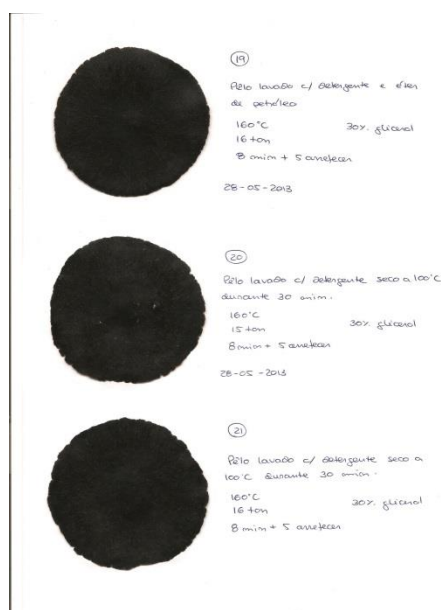 19
Pêlo lavado c/ detergente e éter
de petróleo
160°C 30% glicerol
16 ton
8 min + 5 arrefecer
28-05-2013
20
Pêlo lavado c/ detergente seco a 100°C
durante 30 min.
160°C
15 ton 30% glicerol
8 min + 5 arrefecer
28-05-2013
21
Pêlo lavado c/ detergente seco a
100°C durante 30 min.
160°C
16 ton 30% glicerol
8 min + 5 arrefecer